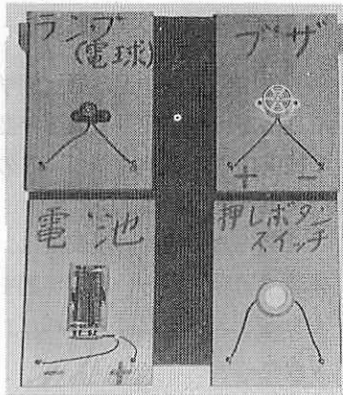 ランプ
(電球)
ブザ
+ -
電池
- +
押しボタン
スイッチ